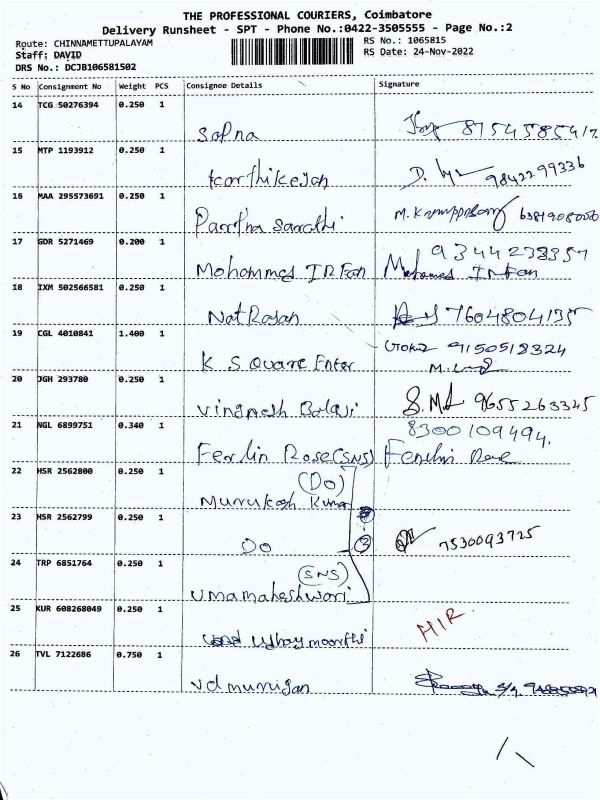 THE PROFESSIONAL COURIERS, Coimbatore
Delivery Runsheet - SPT - Phone No.:0422-3505555 - Page No.:2
Route: CHINNAMETTUPALAYAM
RS No.: 1065815
Staff: DAVID
RS Date: 24-Nov-2022
DRS No.: DCJB106581502
S No Consignment No Weight PCS Consignee Details Signature
14 TCG 50276394 0.250 1
Sapna 8754585417
15 MTP 1193912 0.250 1
Karthikeyan D. 9842299336
16 MAA 295573691 0.250 1
Partha Sarathi M. 6381908000
17 GDR 5271469 0.200 1
9344238357
Mohammes IRFan Mohamed IRFan
18 IXM 502566581 0.250 1
NatRajan 7604804135
19 CGL 4010841 1.400 1
Gokul 9150518324
K Square Enter M.
20 JGH 293780 0.250 1
Vingnesh Balaji S.M 9655263345
21 NGL 6899751 0.340 1
8300109494.
Ferlin Rose (SNS) Ferlin Rose
22 HSR 2562800 0.250 1
(DO)
Murukesh Kumar
23 HSR 2562799 0.250 1
DO 3 7530093725
24 TRP 6851764 0.250 1
(SNS)
Umamaheshwari
25 KUR 608268049 0.250 1
Udhay moorthi HIR
26 TVL 7122686 0.750 1
Vdmurugan